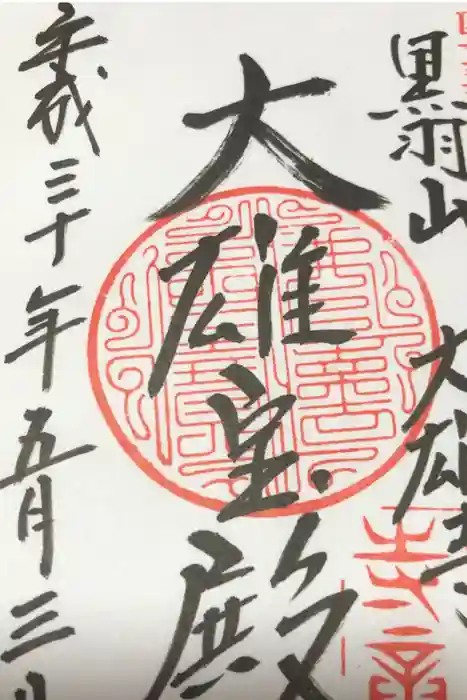 黒羽山
大雄寺
大雄宝殿
平成三十年五月三日